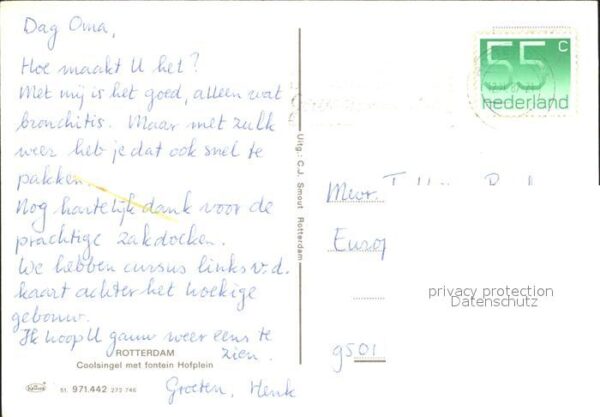 Dag Oma,
Hoe maakt U het?
Met mij is het goed, alleen wat
bronchitis. Maar met zulk
weer heb je dat ook snel te
pakken.
Nog hartelijk dank voor de
prachtige zakdoeken.
We hebben cursus links v.d.
kaart achter het hoekige
gebouw.
Ik hoop U gauw weer eens te
zien.
Groeten, Henk
ROTTERDAM
Coolsingel met fontein Hofplein
51. 971.442 272-746
Uitg.: C.J. Smout Rotterdam
55 c
nederland
Mevr.
Europ
9501
privacy protection
Datenschutz